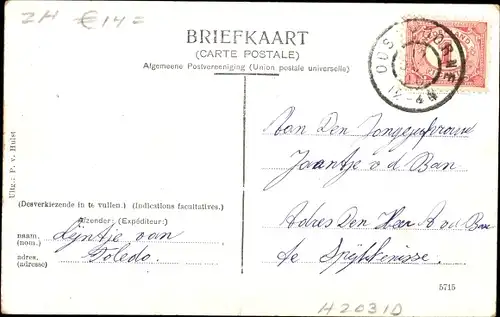 ZH €14=
BRIEFKAART
(CARTE POSTALE)
Algemeene Postvereeniging (Union postale universelle)
Aan Den Jongejufvrouw
Jaantje v d Ban
Adres Den Heer A v d Ban
te Spijkenisse.
Uitg.: P. v. Hulst
(Desverkiezende in te vullen.) (Indications facultatives.)
Afzender: (Expéditeur:)
naam.
(nom.)
Lijntje van
adres.
(adresse)
Toledo.
5715
H2031D